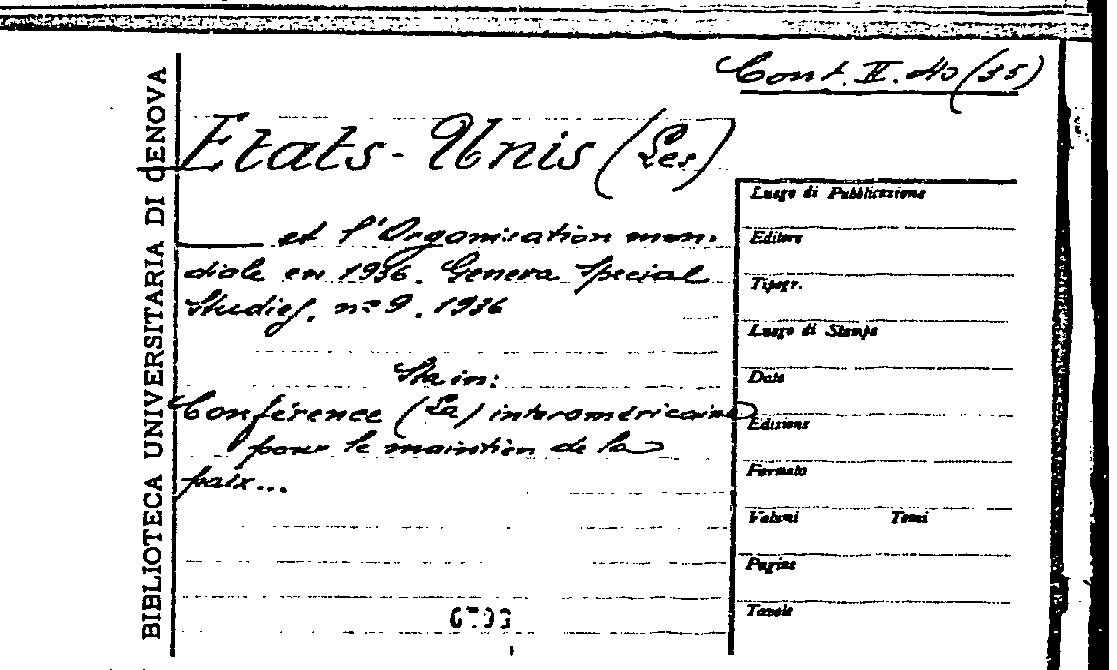 Cont. II. 40 (35)
BIBLIOTECA UNIVERSITARIA DI GENOVA
Etats-Unis (Les)
____ et l'Organisation mon-
diale en 1936. Geneva Special
Studies, n° 9. 1936
Sta in:
Conférence (La) interaméricaine
pour le maintien de la
paix...
Luogo di Pubblicazione
Editore
Tipogr.
Luogo di Stampa
Data
Edizione
Formato
Volumi Tomi
Pagine
Tavole